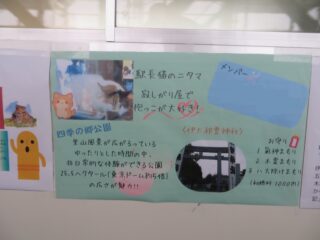 駅長猫のニタマ
寂しがり屋で
抱っこが大好き!
メンバー
四季の郷公園
里山風景が広がっている
ゆったりとした時間の中、
非日常的な体験ができる公園
25.5ヘクタール(東京ドーム約5個)
の広さが魅力!!
(伊太祁曽神社)
お守り
1.
2.木霊まもり
3.